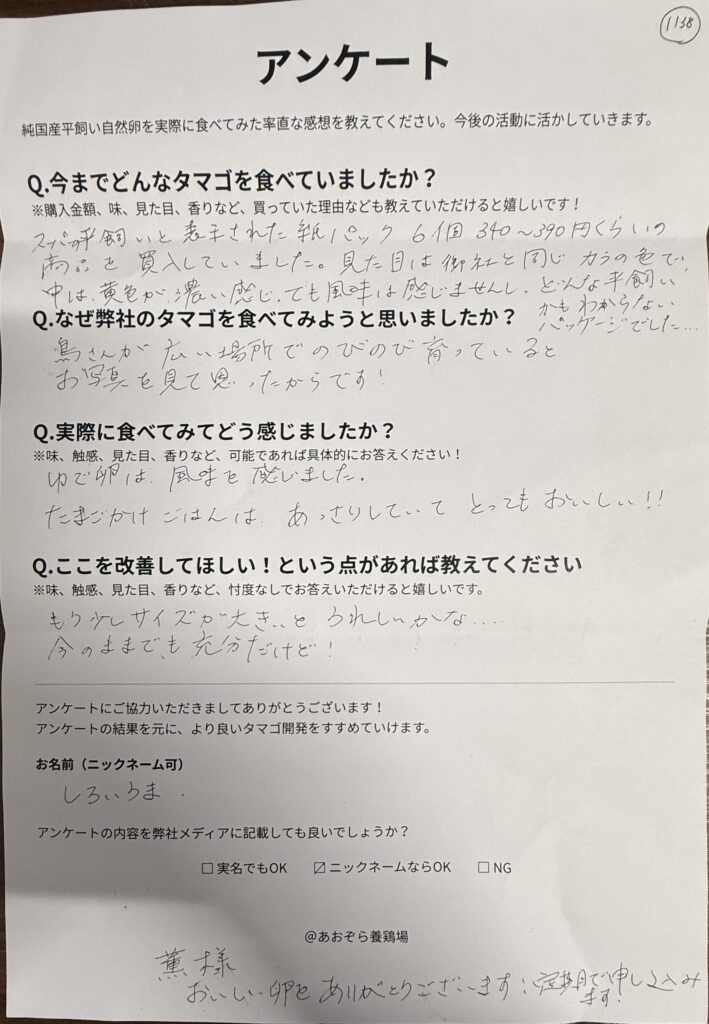 1138
アンケート
純国産平飼い自然卵を実際に食べてみた率直な感想を教えてください。今後の活動に活かしていきます。
Q.今までどんなタマゴを食べていましたか?
※購入金額、味、見た目、香りなど、買っていた理由なども教えていただけると嬉しいです!
平飼いと表示された紙パック 6個 340~390円くらいの
商品を買入していました。見た目は御社と同じカラの色で、
中は、黄色が濃い感じ、でも風味は感じませんし、どんな平飼い
かもわからない
パッケージでした…
Q.なぜ弊社のタマゴを食べてみようと思いましたか?
鳥さんが広い場所でのびのび育っていると
お写真を見て思ったからです!
Q.実際に食べてみてどう感じましたか?
※味、触感、見た目、香りなど、可能であれば具体的にお答えください!
ゆで卵は、風味を感じました。
たまごかけごはんは、あっさりしていてとってもおいしい!!
Q.ここを改善してほしい!という点があれば教えてください
※味、触感、見た目、香りなど、忖度なしでお答えいただけると嬉しいです。
もう少しサイズが大きいとうれしいかな....
今のままでも充分だけど!
アンケートにご協力いただきましてありがとうございます!
アンケートの結果を元に、より良いタマゴ開発をすすめていけます。
お名前(ニックネーム可)
しろいうま
アンケートの内容を弊社メディアに記載しても良いでしょうか?
□ 実名でもOK ☑ ニックネームならOK □ NG
@あおぞら養鶏場
薫様
おいしい卵をありがとうございます 定期で申し込み
ます!